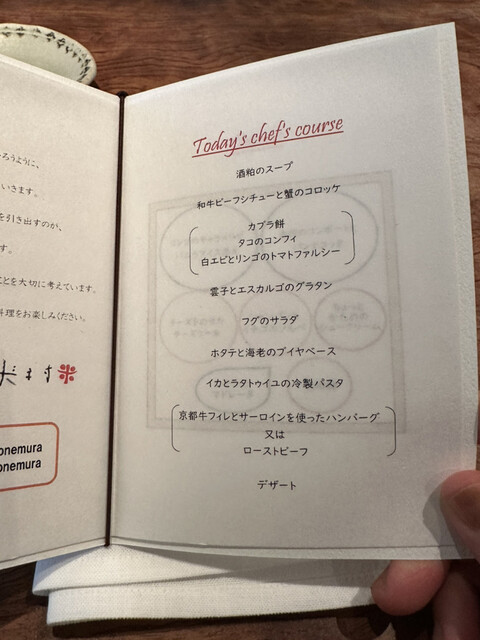 ろうように、
いきます。
を引き出すのが、
す。
とを大切に考えています。
料理をお楽しみください。
ます
onemura
onemura
Today's chef's course
酒粕のスープ
和牛ビーフシチューと蟹のコロッケ
カブラ餅
タコのコンフィ
白エビとリンゴのトマトファルシー
雲子とエスカルゴのグラタン
フグのサラダ
ホタテと海老のブイヤベース
イカとラタトゥイユの冷製パスタ
京都牛フィレとサーロインを使ったハンバーグ
又は
ローストビーフ
デザート